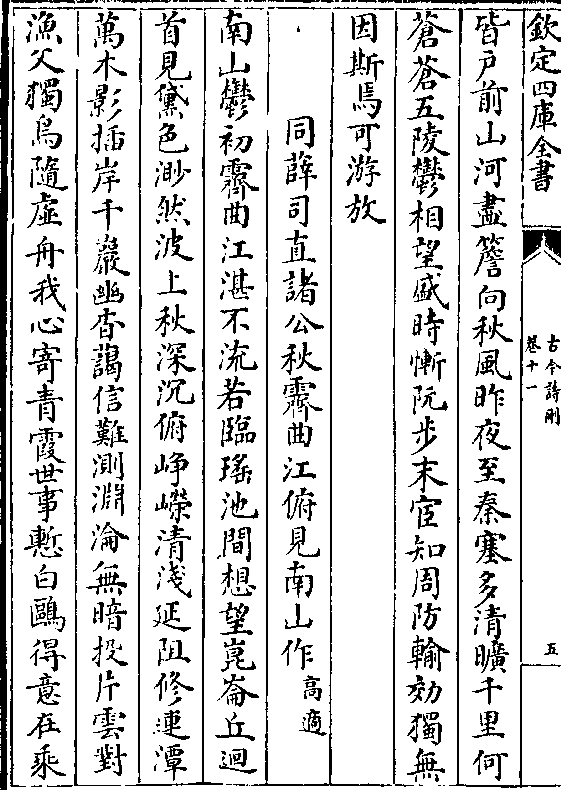 欽定四庫全書
古今詩刪
卷十一
五
皆戸前山河盡簷向秋風昨夜至秦塞多清曠千里何
蒼蒼五陵鬱相望盛時慚阮步末宦知周防輸効獨無
因斯焉可游放
同薛司直諸公秋霽曲江俯見南山作高適
南山鬱初霽曲江湛不流若臨瑤池間想望崑崙丘迴
首見黛色渺然波上秋深沉俯崢嶸清淺延阻修連潭
萬木影插岸千巖幽杳藹信難測淵淪無暗投片雲對
漁父獨鳥隨虛舟我心寄青霞世事慙白鷗得意在乘